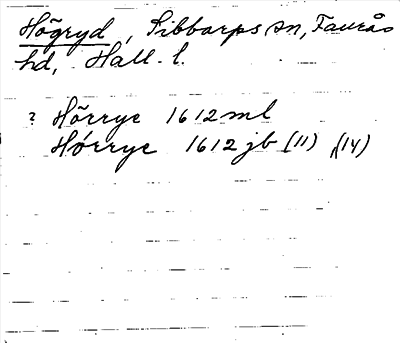 Högryd, Sibbarps sn, Faurås
hd, Hall. l.
? Hörrye 1612 ml
Hórrye 1612 jb (11) (14)